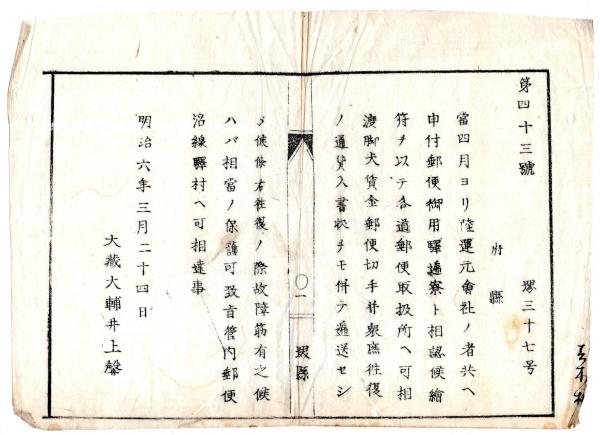 堺三十七号
第四十三號
府縣
當四月ヨリ陸運元會社ノ者共ヘ
申付郵便御用驛遞寮ト相認候繪
符ヲ以テ各道郵便取扱所ヘ可相
渡脚夫賃金郵便切手并衆庶往復
ノ通貨入書状ヲモ併テ遞送セシ
メ候條右往復ノ際故障筋有之候
ハバ相當ノ保護可致旨管内郵便
沿線驛村ヘ可相達事
明治六年三月二十四日
大藏大輔井上馨
〇一
堺縣